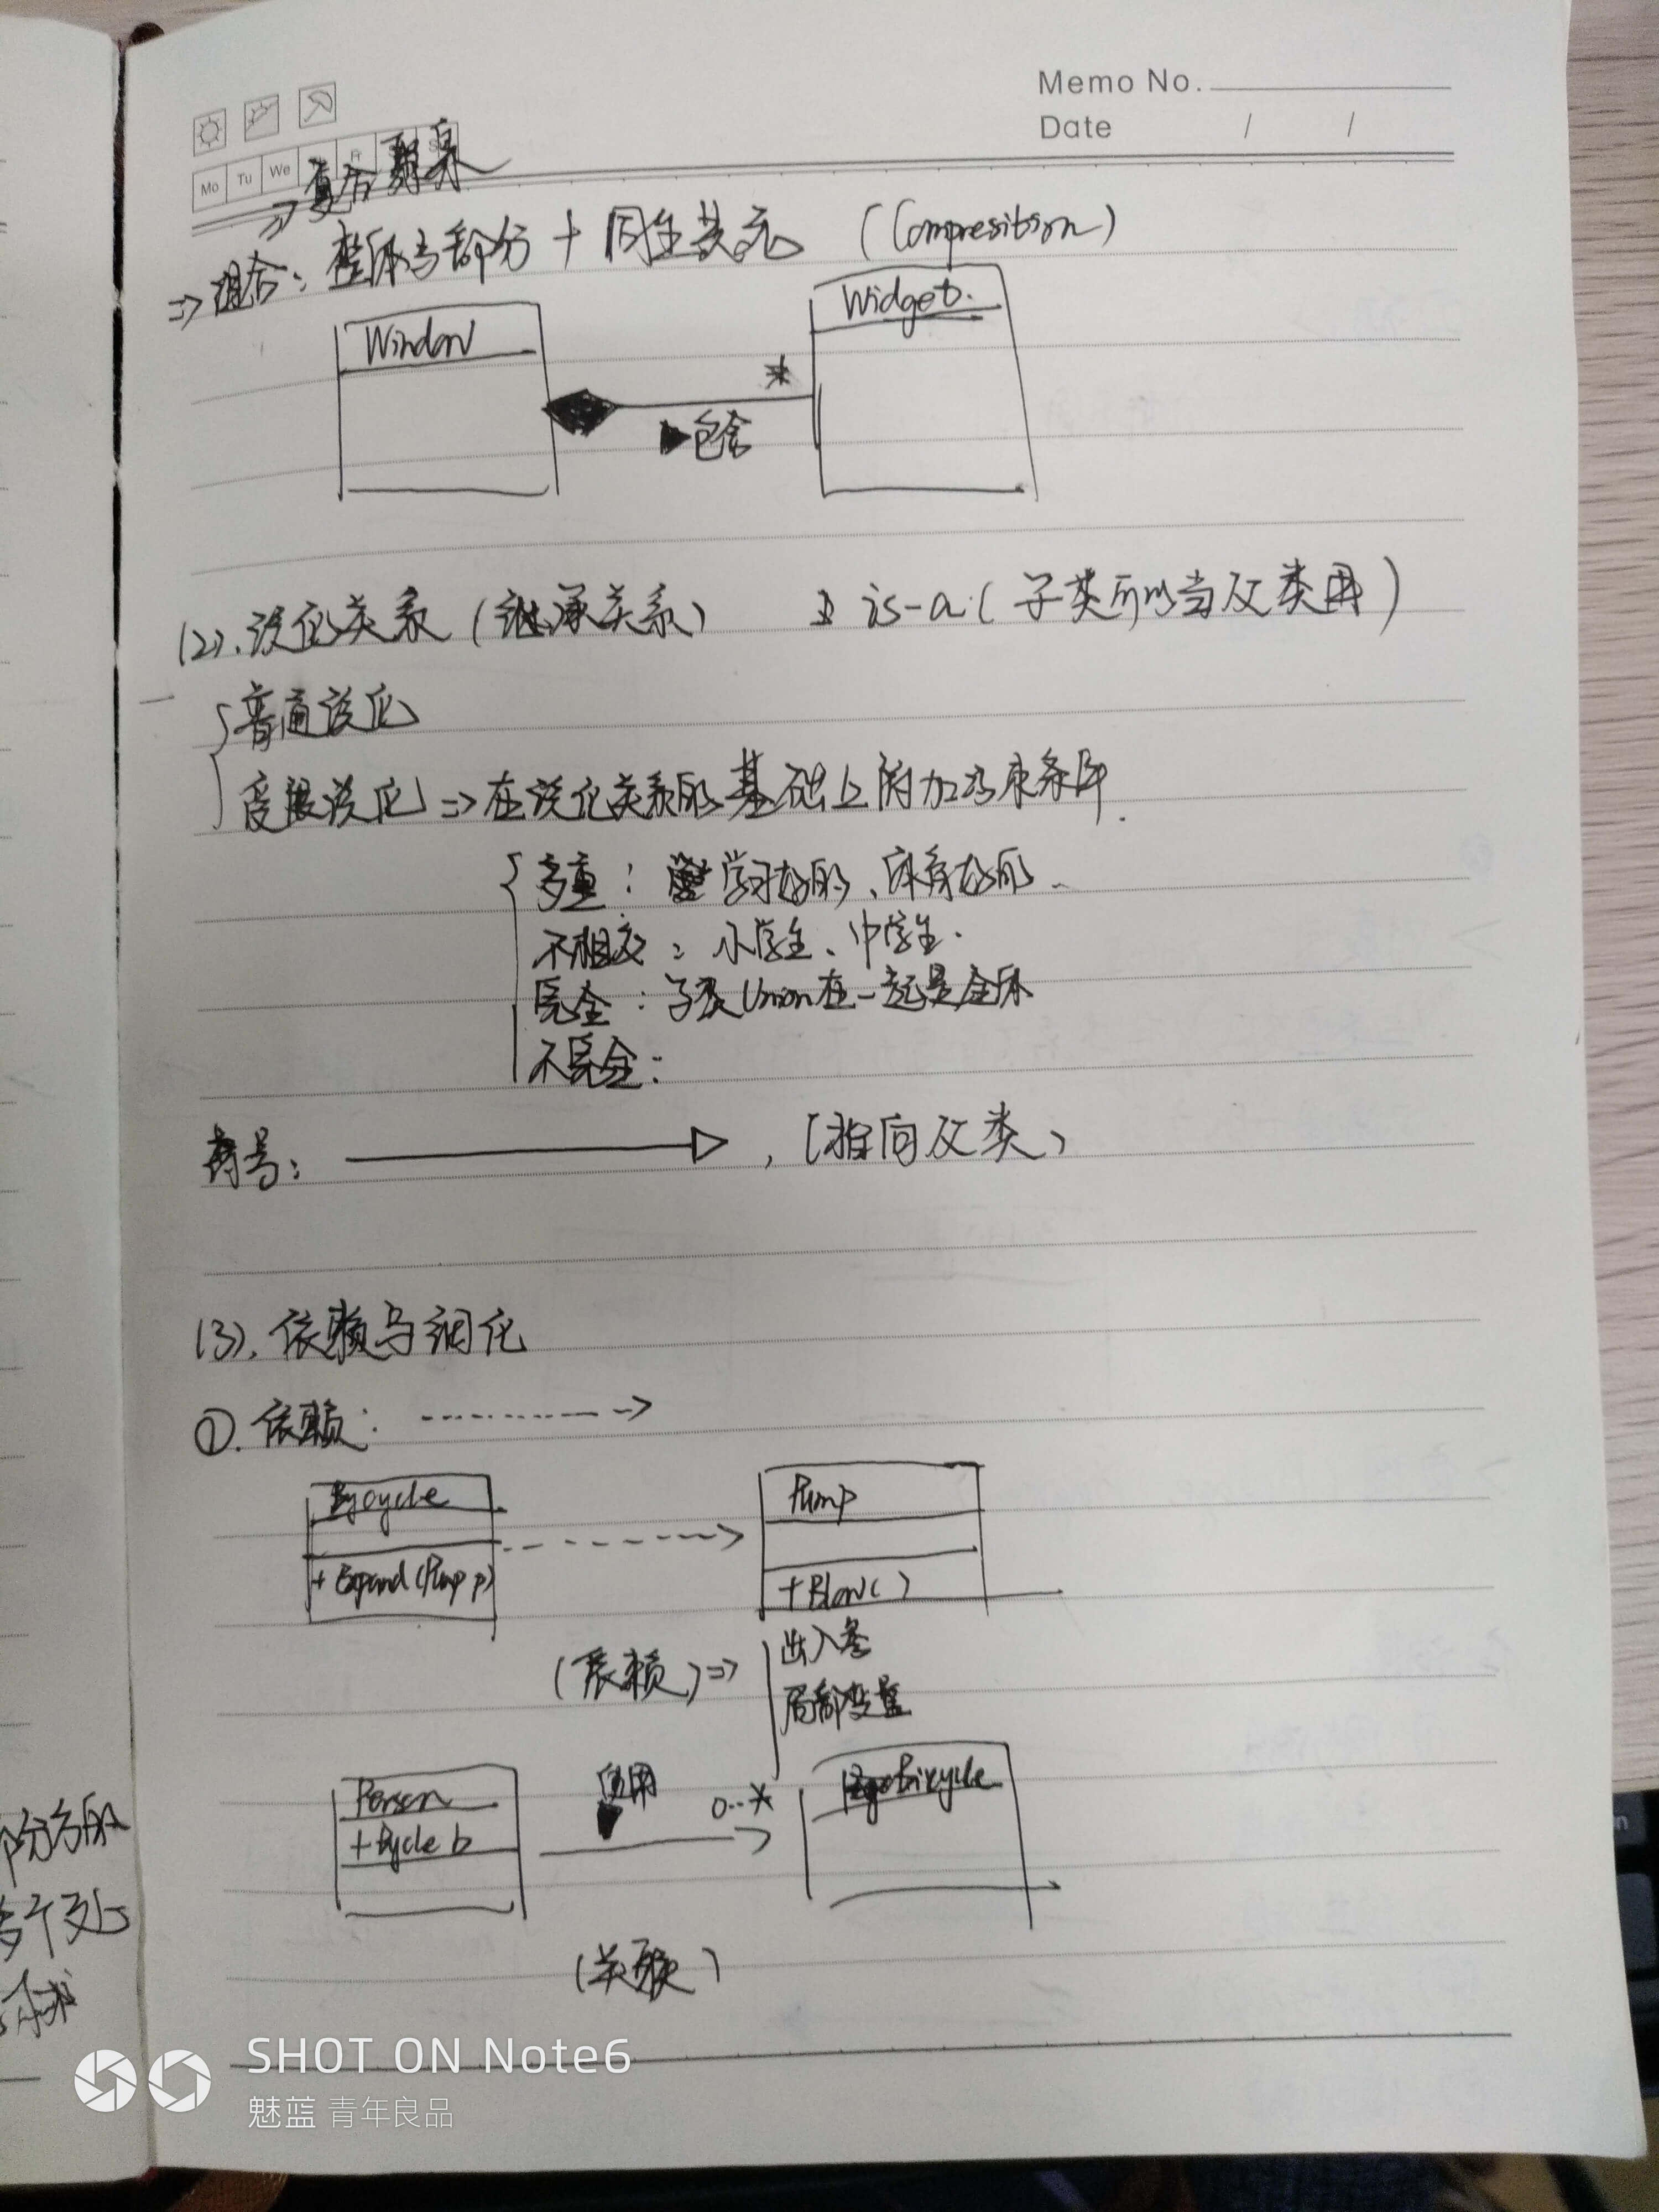 Memo No.
Date / /
Mo Tu We Fr S
=> 复合聚集
=> 组合: 整体与部分 + 同生共死 (Compresition)
Window
Widget.
*
▶包含
(2). 泛化关系 (继承关系) is-a (子类可以当父类用)
普通泛化
受限泛化 => 在泛化关系的基础上附加约束条件.
多重: 学习好的、体育好的
不相交: 小学生、中学生.
完全: 子类Union在一起是全体
不完全:
符号: , [指向父类)
(3). 依赖与细化
①. 依赖:
Bycycle
Pump
+ Expand (Pump p)
+ Blow()
(依赖) => 出入参
局部变量
Person
使用
0..*
Bicycle
+ Bycle b
(关联)
部分方的
多个对
SHOT ON Note6
魅蓝 青年良品